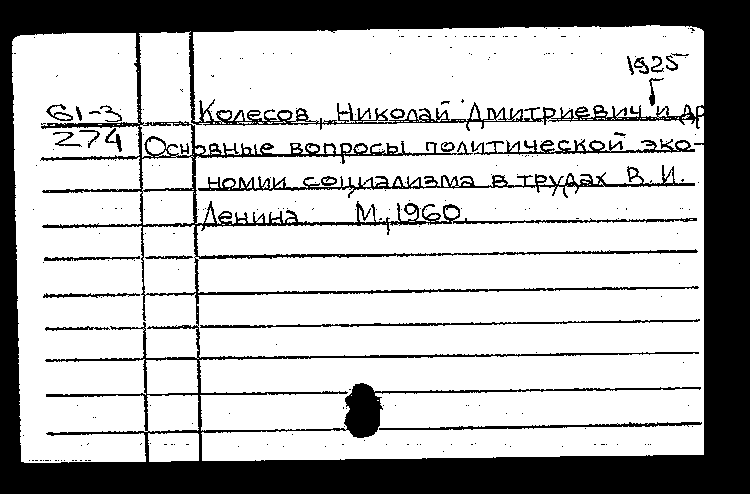 1925
61-3 Колесов, Николай Дмитриевич и др
274 Основные вопросы политической эко-
номии социализма в трудах В.И.
Ленина М., 1960.